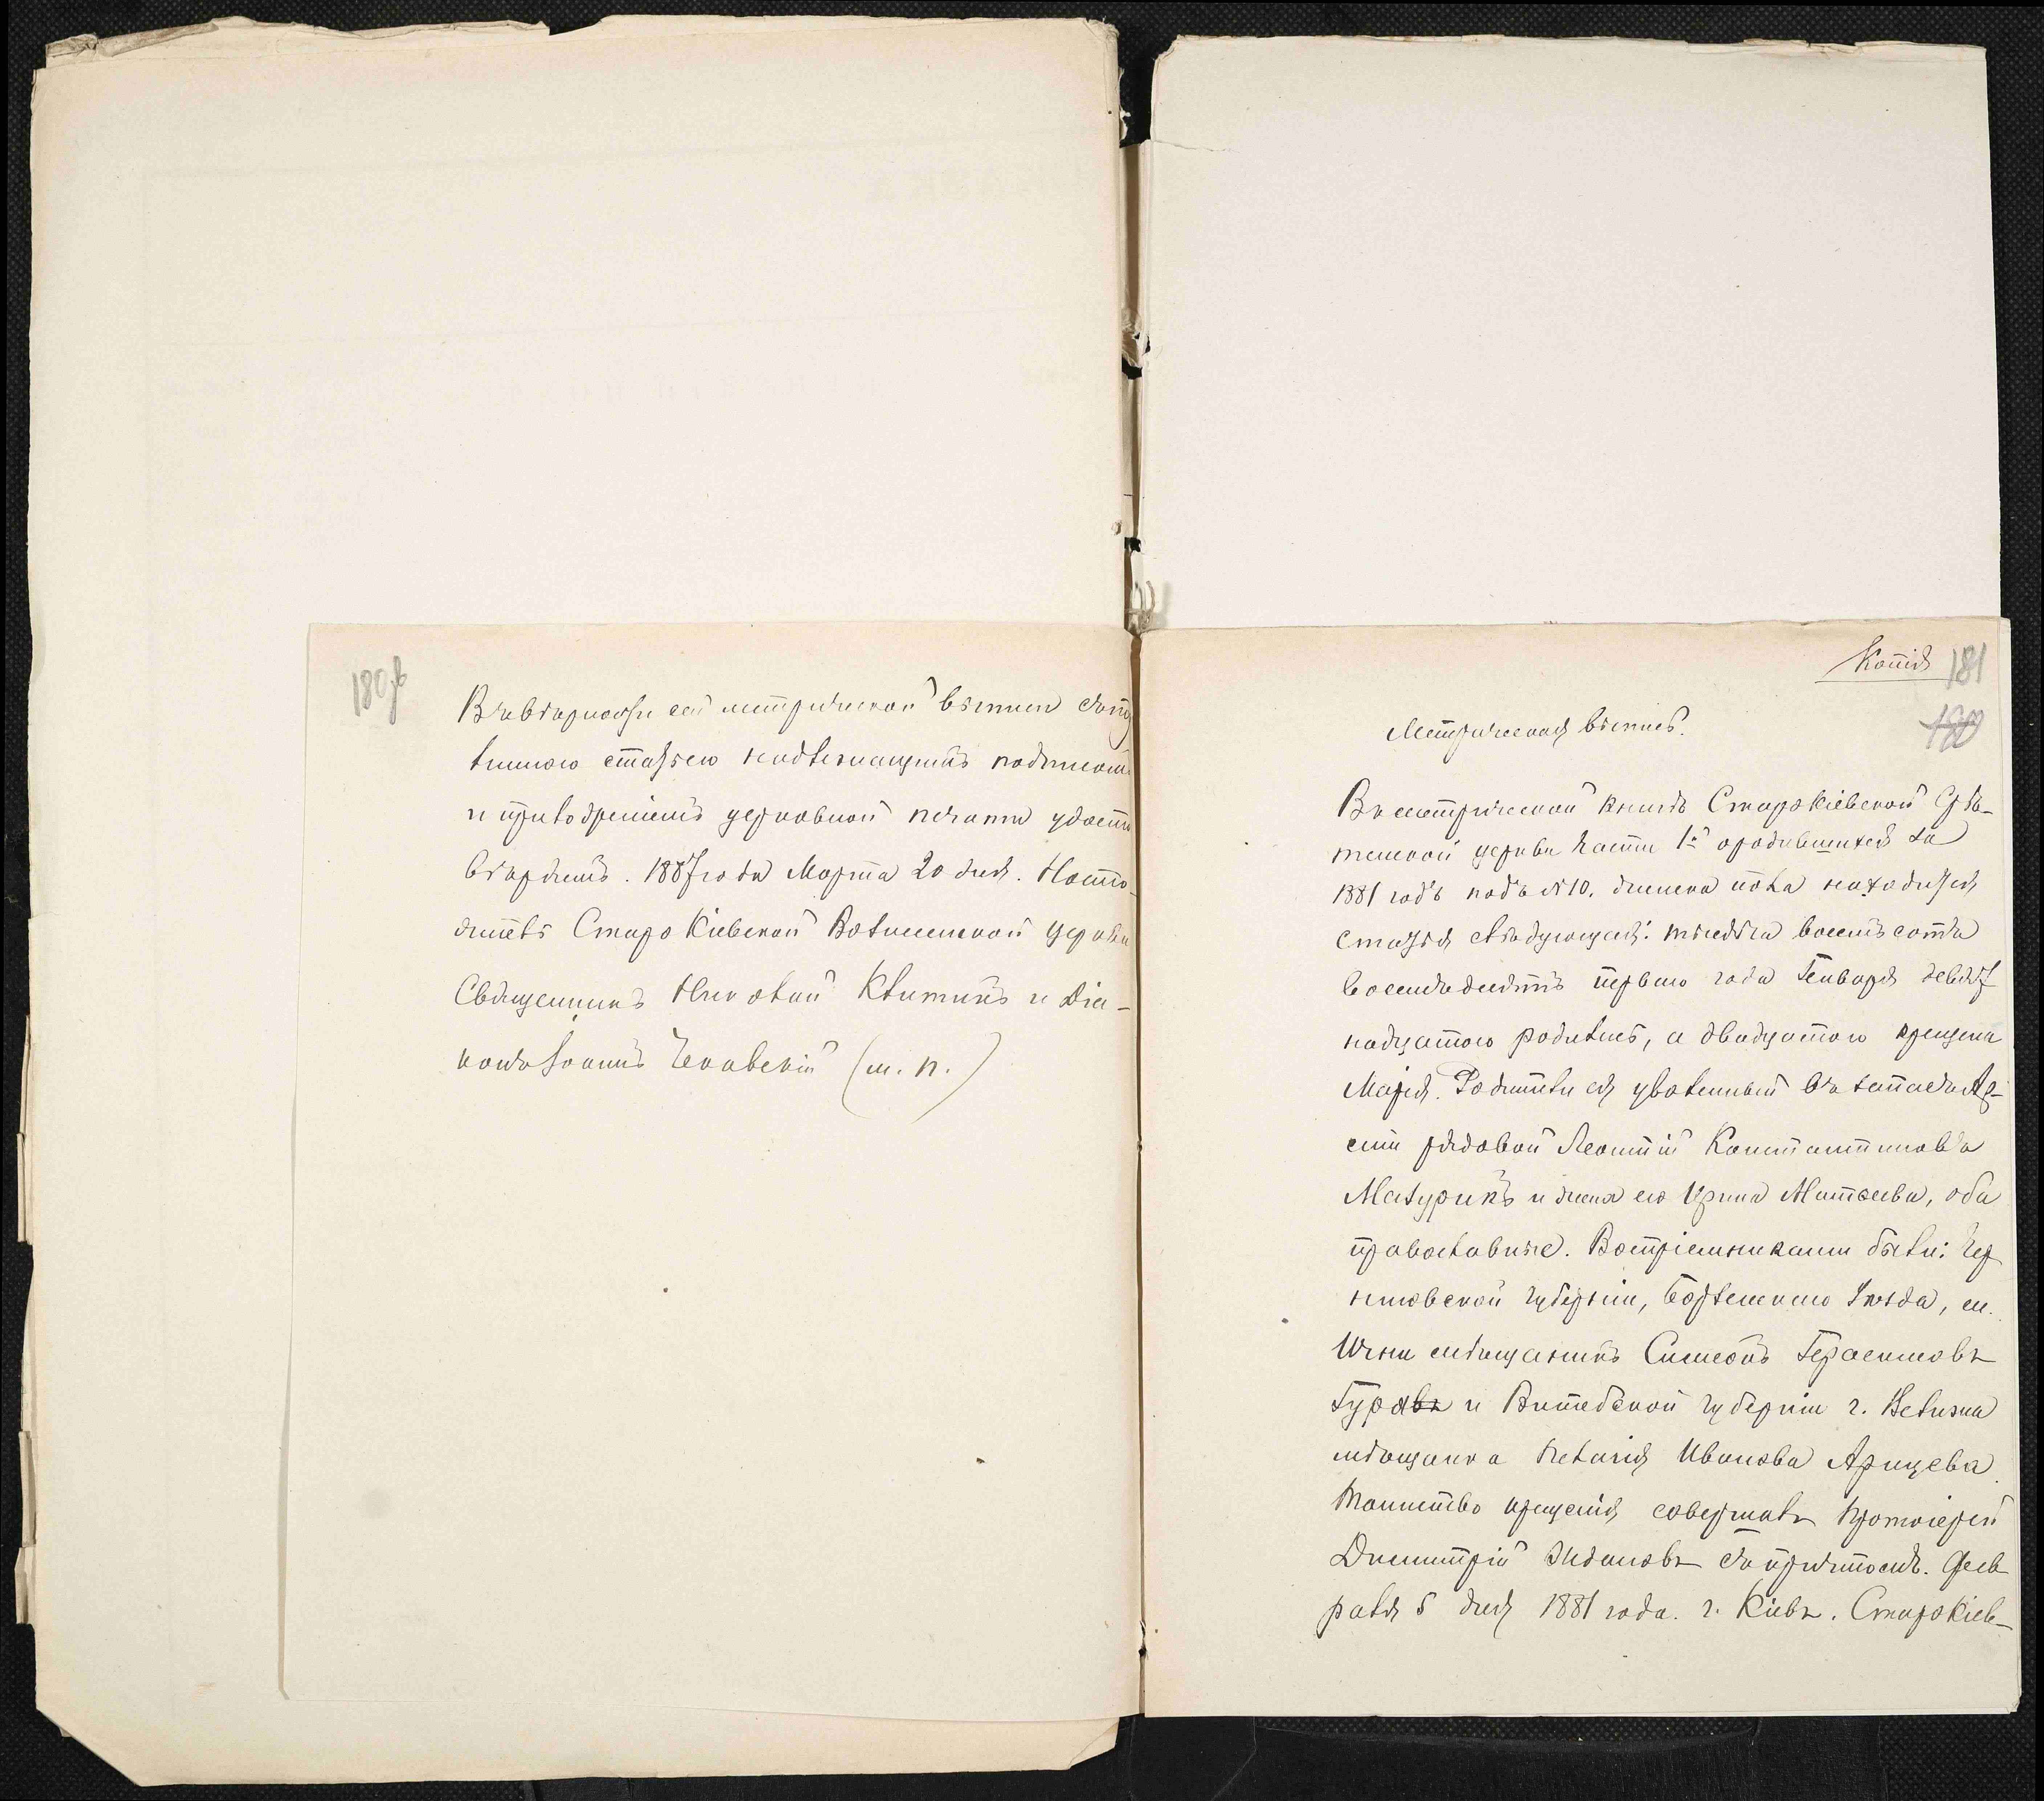 180об
Въ вѣрности сей метрической выписи съ под
линною статьею надлежащимъ подписомъ
и приложеніемъ церковной печати удосто
вѣряемъ. 1887 года Марта 20 дня. Насто-
ятель Старокіевской Вознесенской церкви
Священникъ Николай Климинъ и Діа-
конъ Іоаннъ (м. п.)
Копія 181
180
Метрическая выпись.
Въ метрической книгѣ Старокіевской Срѣ-
тенской церкви части 1й о родившихся за
1881 годъ подъ № 10. женска пола находится
статья слѣдующая: тысяча восемьсотъ
восемьдесятъ перваго года Генваря девят
надцатого родилась, а двадцатого крещена
Марія. Родители ея уволенный въ запасъ Ар-
міи рядовой Леонтій Константиновъ
Мазурикъ и жена его Ирина Матѳеева, оба
православные. Воспріемниками были: Чер
ниговской губерніи, Борзенскаго уѣзда, м.
Ични мѣщанинъ Симеонъ Герасимовъ
Гуровъ и Витебской губерніи г. Велижа
мѣщанка Пелагія Иванова Арицева.
Таинство крещенія совершалъ Протоіерей
Димитрій Ждановъ съ причтомъ. Фев
раля 5 дня 1881 года. г. Кіевъ. Старокіев-